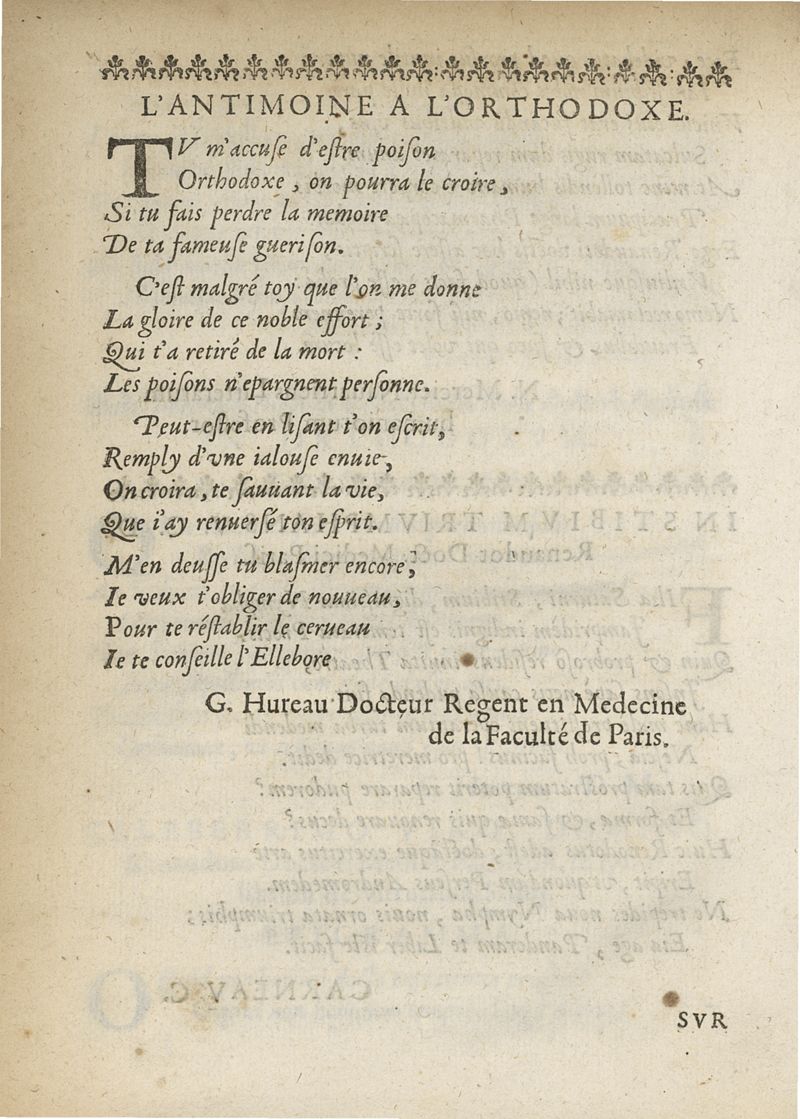 L'ANTIMOINE A L'ORTHODOXE.
TV m'accuſe d'eſtre poiſon
Orthodoxe, on pourra le croire,
Si tu fais perdre la memoire
De ta fameuſe gueriſon.
C'eſt malgré toy que l'on me donne
La gloire de ce noble effort;
Qui t'a retiré de la mort:
Les poiſons n'epargnent perſonne.
Peut-eſtre en liſant t'on eſcrit,
Remply d'vne ialouſe enuie,
On croira, te ſauuant la vie,
Que i'ay renuerſé ton eſprit.
M'en deuſſe tu blaſmer encore,
Ie veux t'obliger de nouueau,
Pour te réſtablir le cerueau
Ie te conſeille l'Ellebore
G. Hureau Docteur Regent en Medecine
de la Faculté de Paris.
SVR